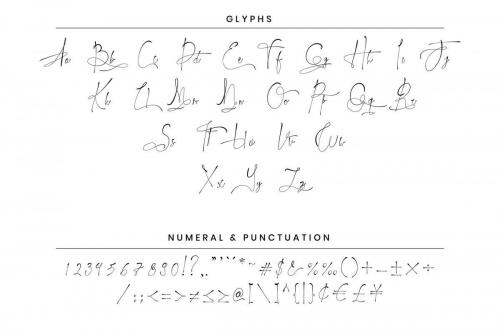 GLYPHS
Aa Bb Cc Dd Ee Ff Gg Hh Ii Jj
Kk Ll Mm Nn Oo Pp Qq Rr
Ss Tt Uu Vv Ww
Xx Yy Zz
NUMERAL & PUNCTUATION
1234567890!?,."'`'*~#$&%‰()+−±×÷
/:;<=>≠≤≥@[\]^{|}¢€£¥